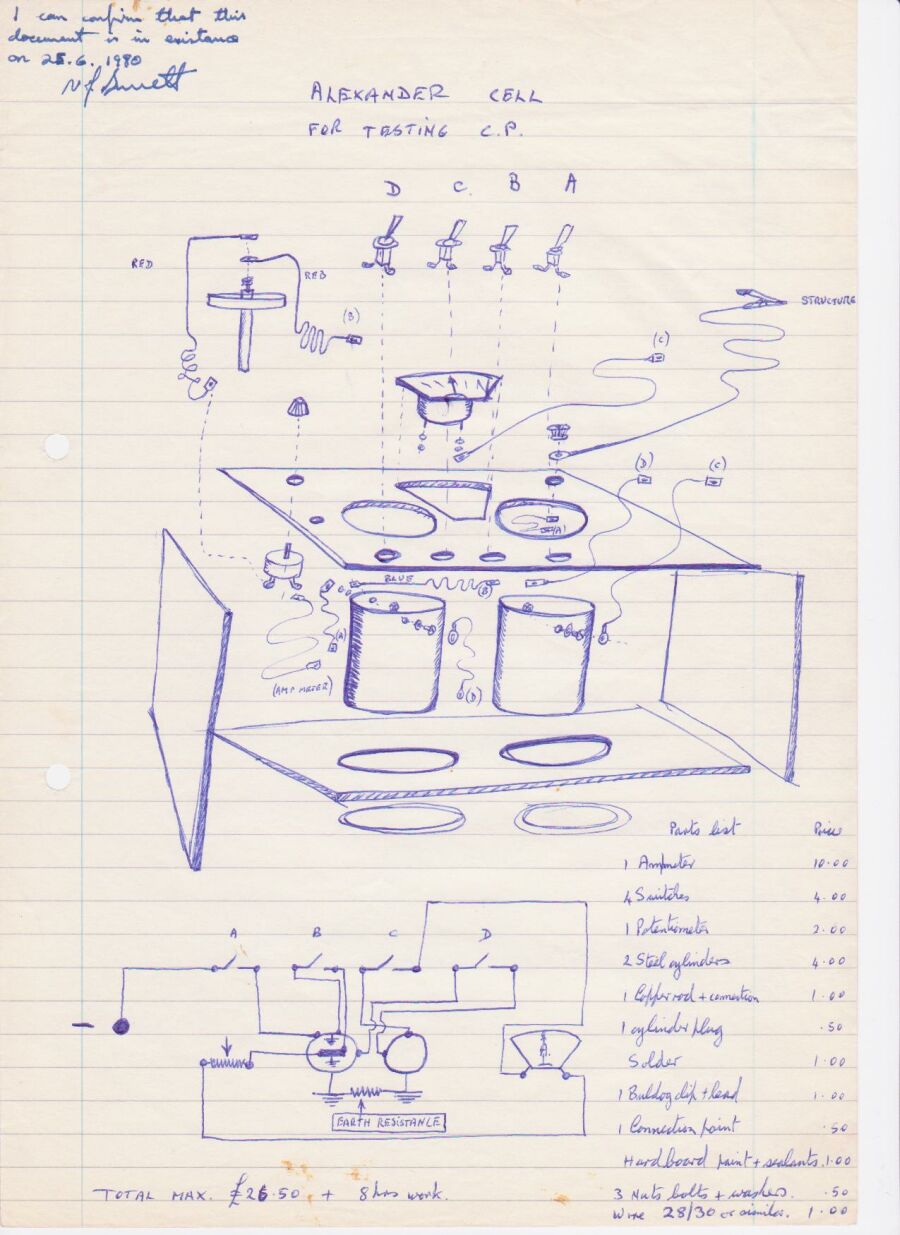 I can confirm that this
document is in existance
on 25.6.1980
ALEXANDER CELL
FOR TESTING C.P.
D C. B A
RED
RED
(B)
(C)
STRUCTURE
(D)
(C)
(A)
BLUE
(B)
(A)
(D)
(AMP METER)
A B C D
EARTH RESISTANCE
Parts list Price
1 Ammeter 10.00
4 Switches 4.00
1 Potentiometer 2.00
2 Steel cylinders 4.00
1 Copper rod + connection 1.00
1 cylinder plug .50
Solder 1.00
1 Bulldog clip + lead 1.00
1 Connection point .50
Hardboard paint + sealants. 1.00
3 Nuts bolts + washers. .50
Wire 28/30 or similar. 1.00
TOTAL MAX. £26.50 + 8 hrs work.